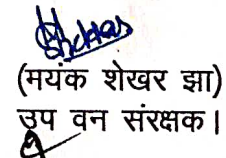 (मयंक शेखर झा)
उप वन संरक्षक।